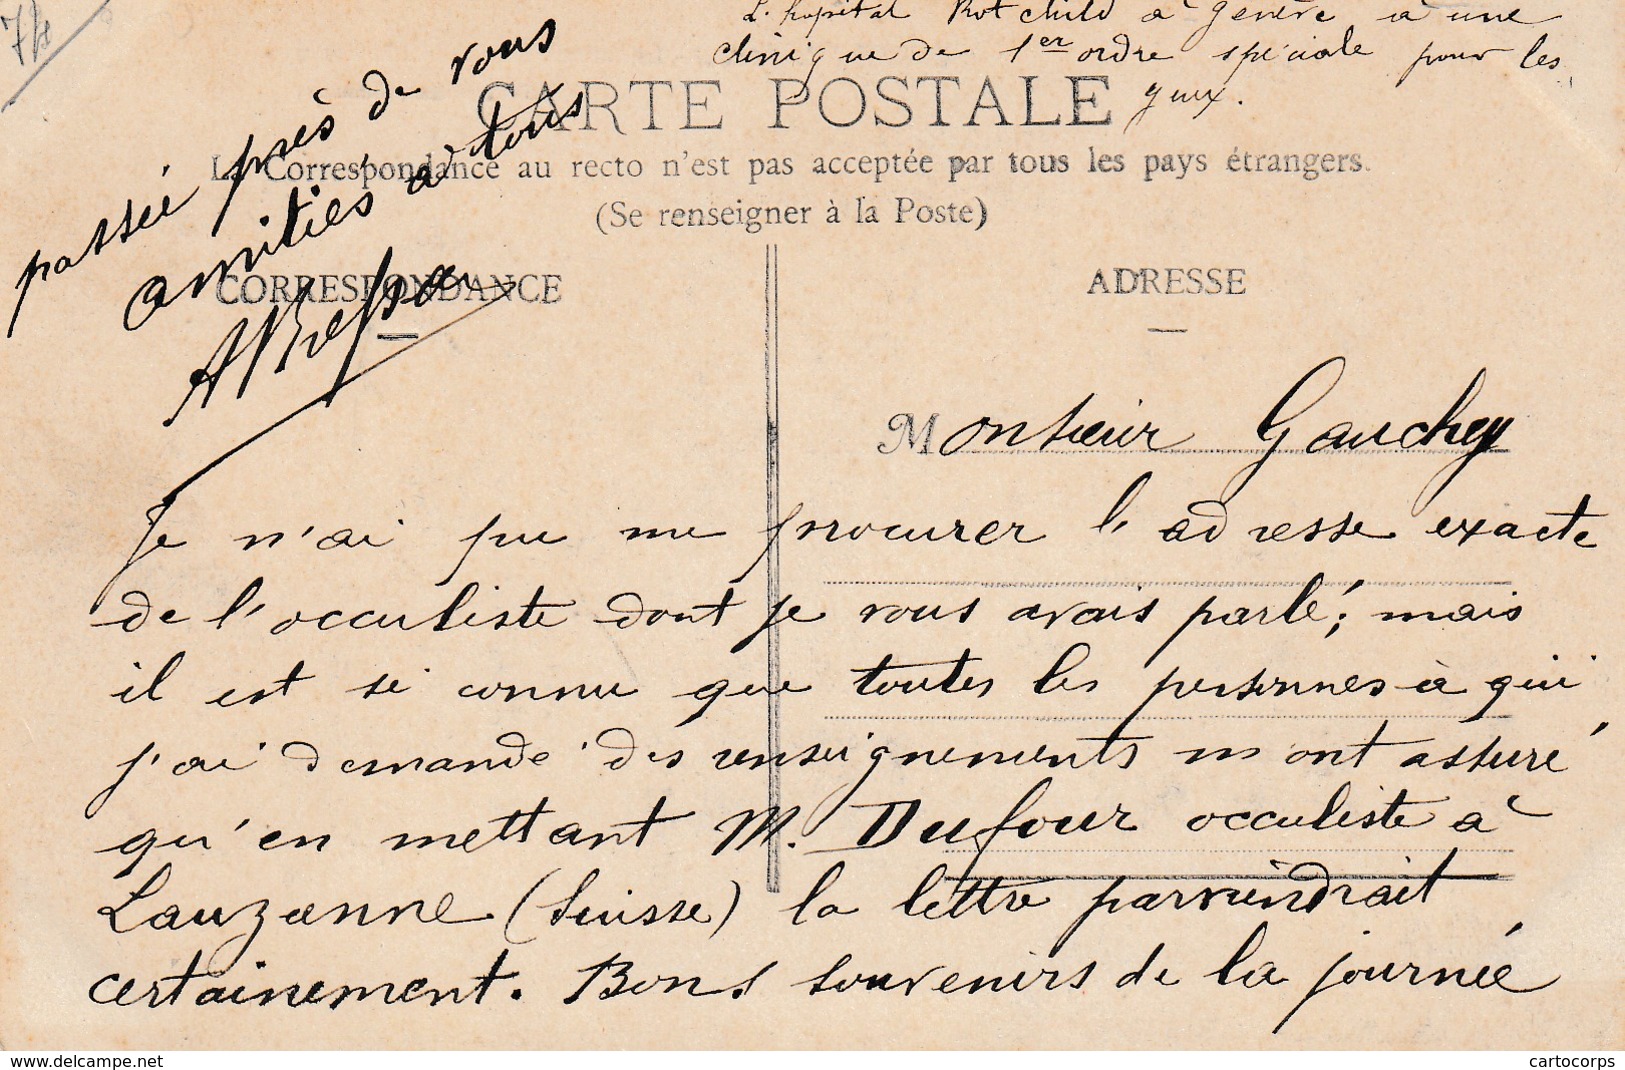 7/8
L'hopital Rotchild à genève a une
clinique de 1er ordre spéciale pour les
yeux.
CARTE POSTALE
La Correspondance au recto n'est pas acceptée par tous les pays étrangers.
(Se renseigner à la Poste)
CORRESPONDANCE
ADRESSE
Monsieur Gauchey
Je n'ai pu me procurer l'adresse exacte
de l'occuliste dont je vous avais parlé; mais
il est si connu que toutes les personnes à qui
j'ai demandé des renseignements m'ont assuré
qu'en mettant M. Dufour occuliste à
Lauzanne (Suisse) la lettre parviendrait
certainement. Bons souvenirs de la journée
passée près de vous
amitiés à tous
cartocorps
-- https://www.delcampe.net